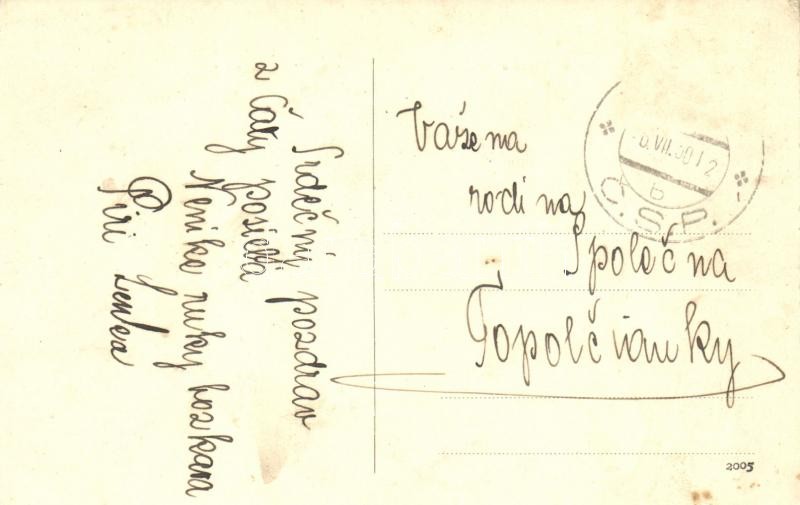 Srdečný pozdrav
z Čaty posiela
Nenike ruky bozkava
Piri Lenka
Važena
rodina
Společna
Topolčianky
6.VII.30 12
b
Č.S.P.
2005